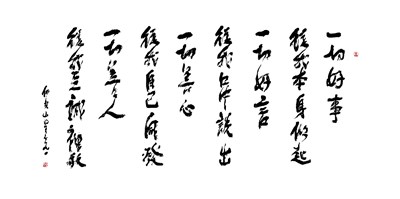 一切好事
從我本身做起
一切好言
從我口中說出
一切善心
從我自己
一切善人
從我誠禮敬
佛光山星雲